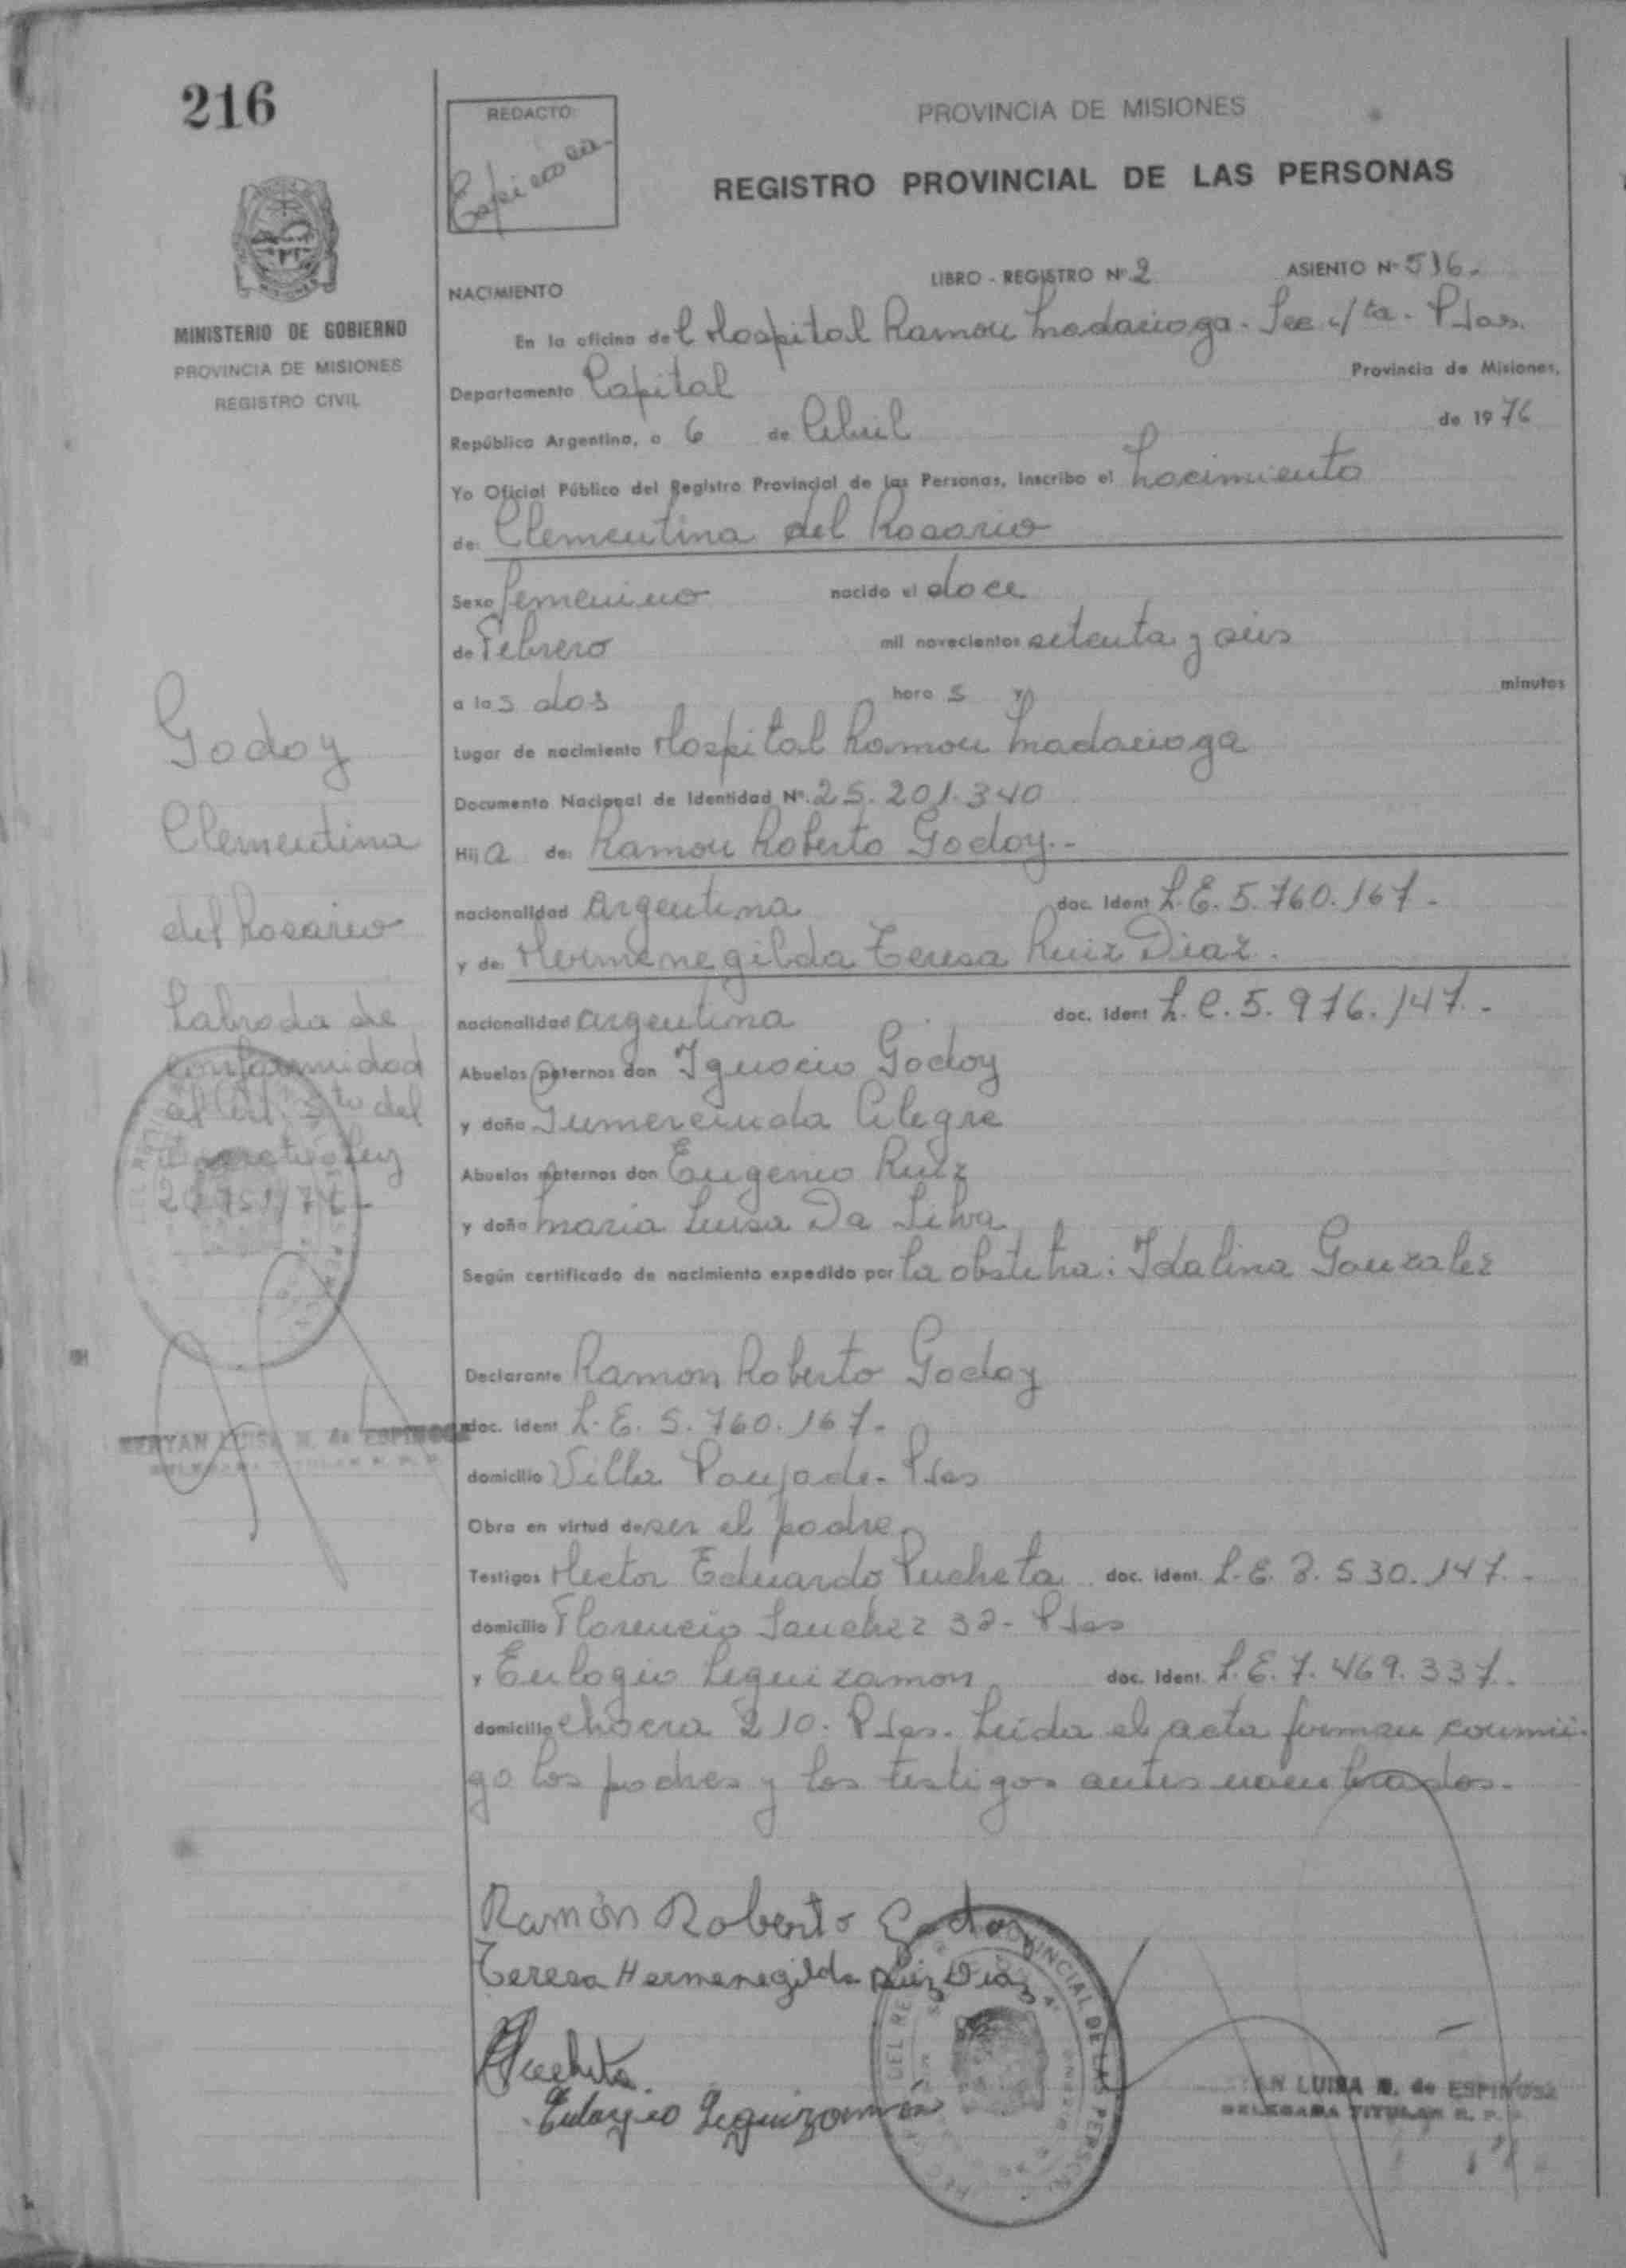 216
REDACTO:
PROVINCIA DE MISIONES
REGISTRO PROVINCIAL DE LAS PERSONAS
MINISTERIO DE GOBIERNO
PROVINCIA DE MISIONES
REGISTRO CIVIL
LIBRO - REGISTRO Nº 2 ASIENTO Nº 516.
NACIMIENTO
En la oficina del Hospital Ramon Madariaga - Sec 4ta - Pdas.
Departamento Capital Provincia de Misiones,
República Argentina, a 6 de Abril de 1976
Yo Oficial Público del Registro Provincial de las Personas, inscribo el Nacimiento
de: Clementina del Rosario
Sexo femenino nacido el doce
de Febrero mil novecientos setenta y seis
a las dos horas y minutos
Lugar de nacimiento Hospital Ramon Madariaga
Documento Nacional de Identidad Nº. 25.201.340
Hija de: Ramon Roberto Godoy.-
nacionalidad argentina doc. Ident L.E. 5.760.167.-
y de: Hermenegilda Teresa Ruiz Diaz.
nacionalidad argentina doc. Ident L.C. 5.976.147.-
Abuelos paternos don Ignacio Godoy
y doña Gumercinda Alegre
Abuelos maternos don Eugenio Ruiz
y doña Maria Luisa Da Silva
Según certificado de nacimiento expedido por la obstetra: Idalina Gonzalez
Declarante Ramon Roberto Godoy
doc. Ident L.E. 5.760.167.-
domicilio Villa Poujade - Pdas
Obra en virtud de ser el padre.
Testigos Hector Eduardo Pucheta doc. ident. L.E. 8.530.147.-
domicilio Florencio Sanchez 32 - Pdas
y Eulogio Leguizamon doc. Ident. L.E. 7.469.337.-
domicilio chacra 210. Pdas. Leida el acta firman conmi-
go los padres y los testigos antes nombrados.-
Godoy
Clementina
del Rosario
Labrada de
conformidad
al Art. 5to del
Decreto Ley
20751/74-
LUISA M. de ESPINOSA
DELEGADA TITULAR R. P. P.
Ramón Roberto Godoy
Teresa Hermenegilda Ruiz Diaz
Pucheta.
Eulogio Leguizamón
PROVINCIAL DE LAS PERSON
LUISA M. de ESPINOSA
DELEGADA TITULAR R. P. P.